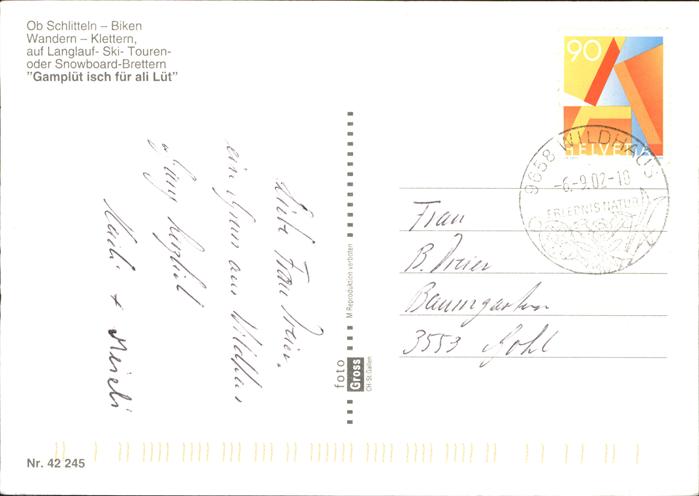 Ob Schlitteln – Biken
Wandern – Klettern,
auf Langlauf- Ski- Touren-
oder Snowboard-Brettern
"Gamplüt isch für ali Lüt"
90
HELVETIA
9658 WILDHAUS
-6.-9.02-18
ERLEBNIS NATUR
Liebe Frau Dreier,
ein Gruss aus Wildhaus
herzlich
+
Frau
B. Dreier
Baumgarten
3553 Gohl
M Reproduktion verboten
foto
Gross
CH-St. Gallen
Nr. 42 245